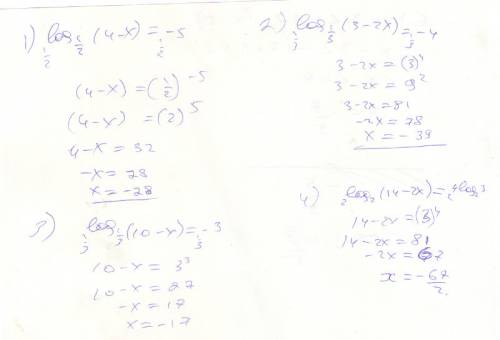 1) ½^(log_{1/2} (4-x)) = ½^(-5)
(4-x) = (1/2)^-5
(4-x) = (2)^5
4-x = 32
-x = 28
x = -28
2) ⅓^(log_{1/3} (3-2x)) = ⅓^(-4)
3-2x = (3)^4
3-2x = 9^2
3-2x = 81
-2x = 78
x = -39
3) ⅓^(log_{1/3} (10-x)) = ⅓^(-3)
10-x = 3^3
10-x = 27
-x = 17
x = -17
4) 2^(log_2 (14-2x)) = 2^(4log_2 3)
14-2x = (3)^4
14-2x = 81
-2x = 67
x = -67/2